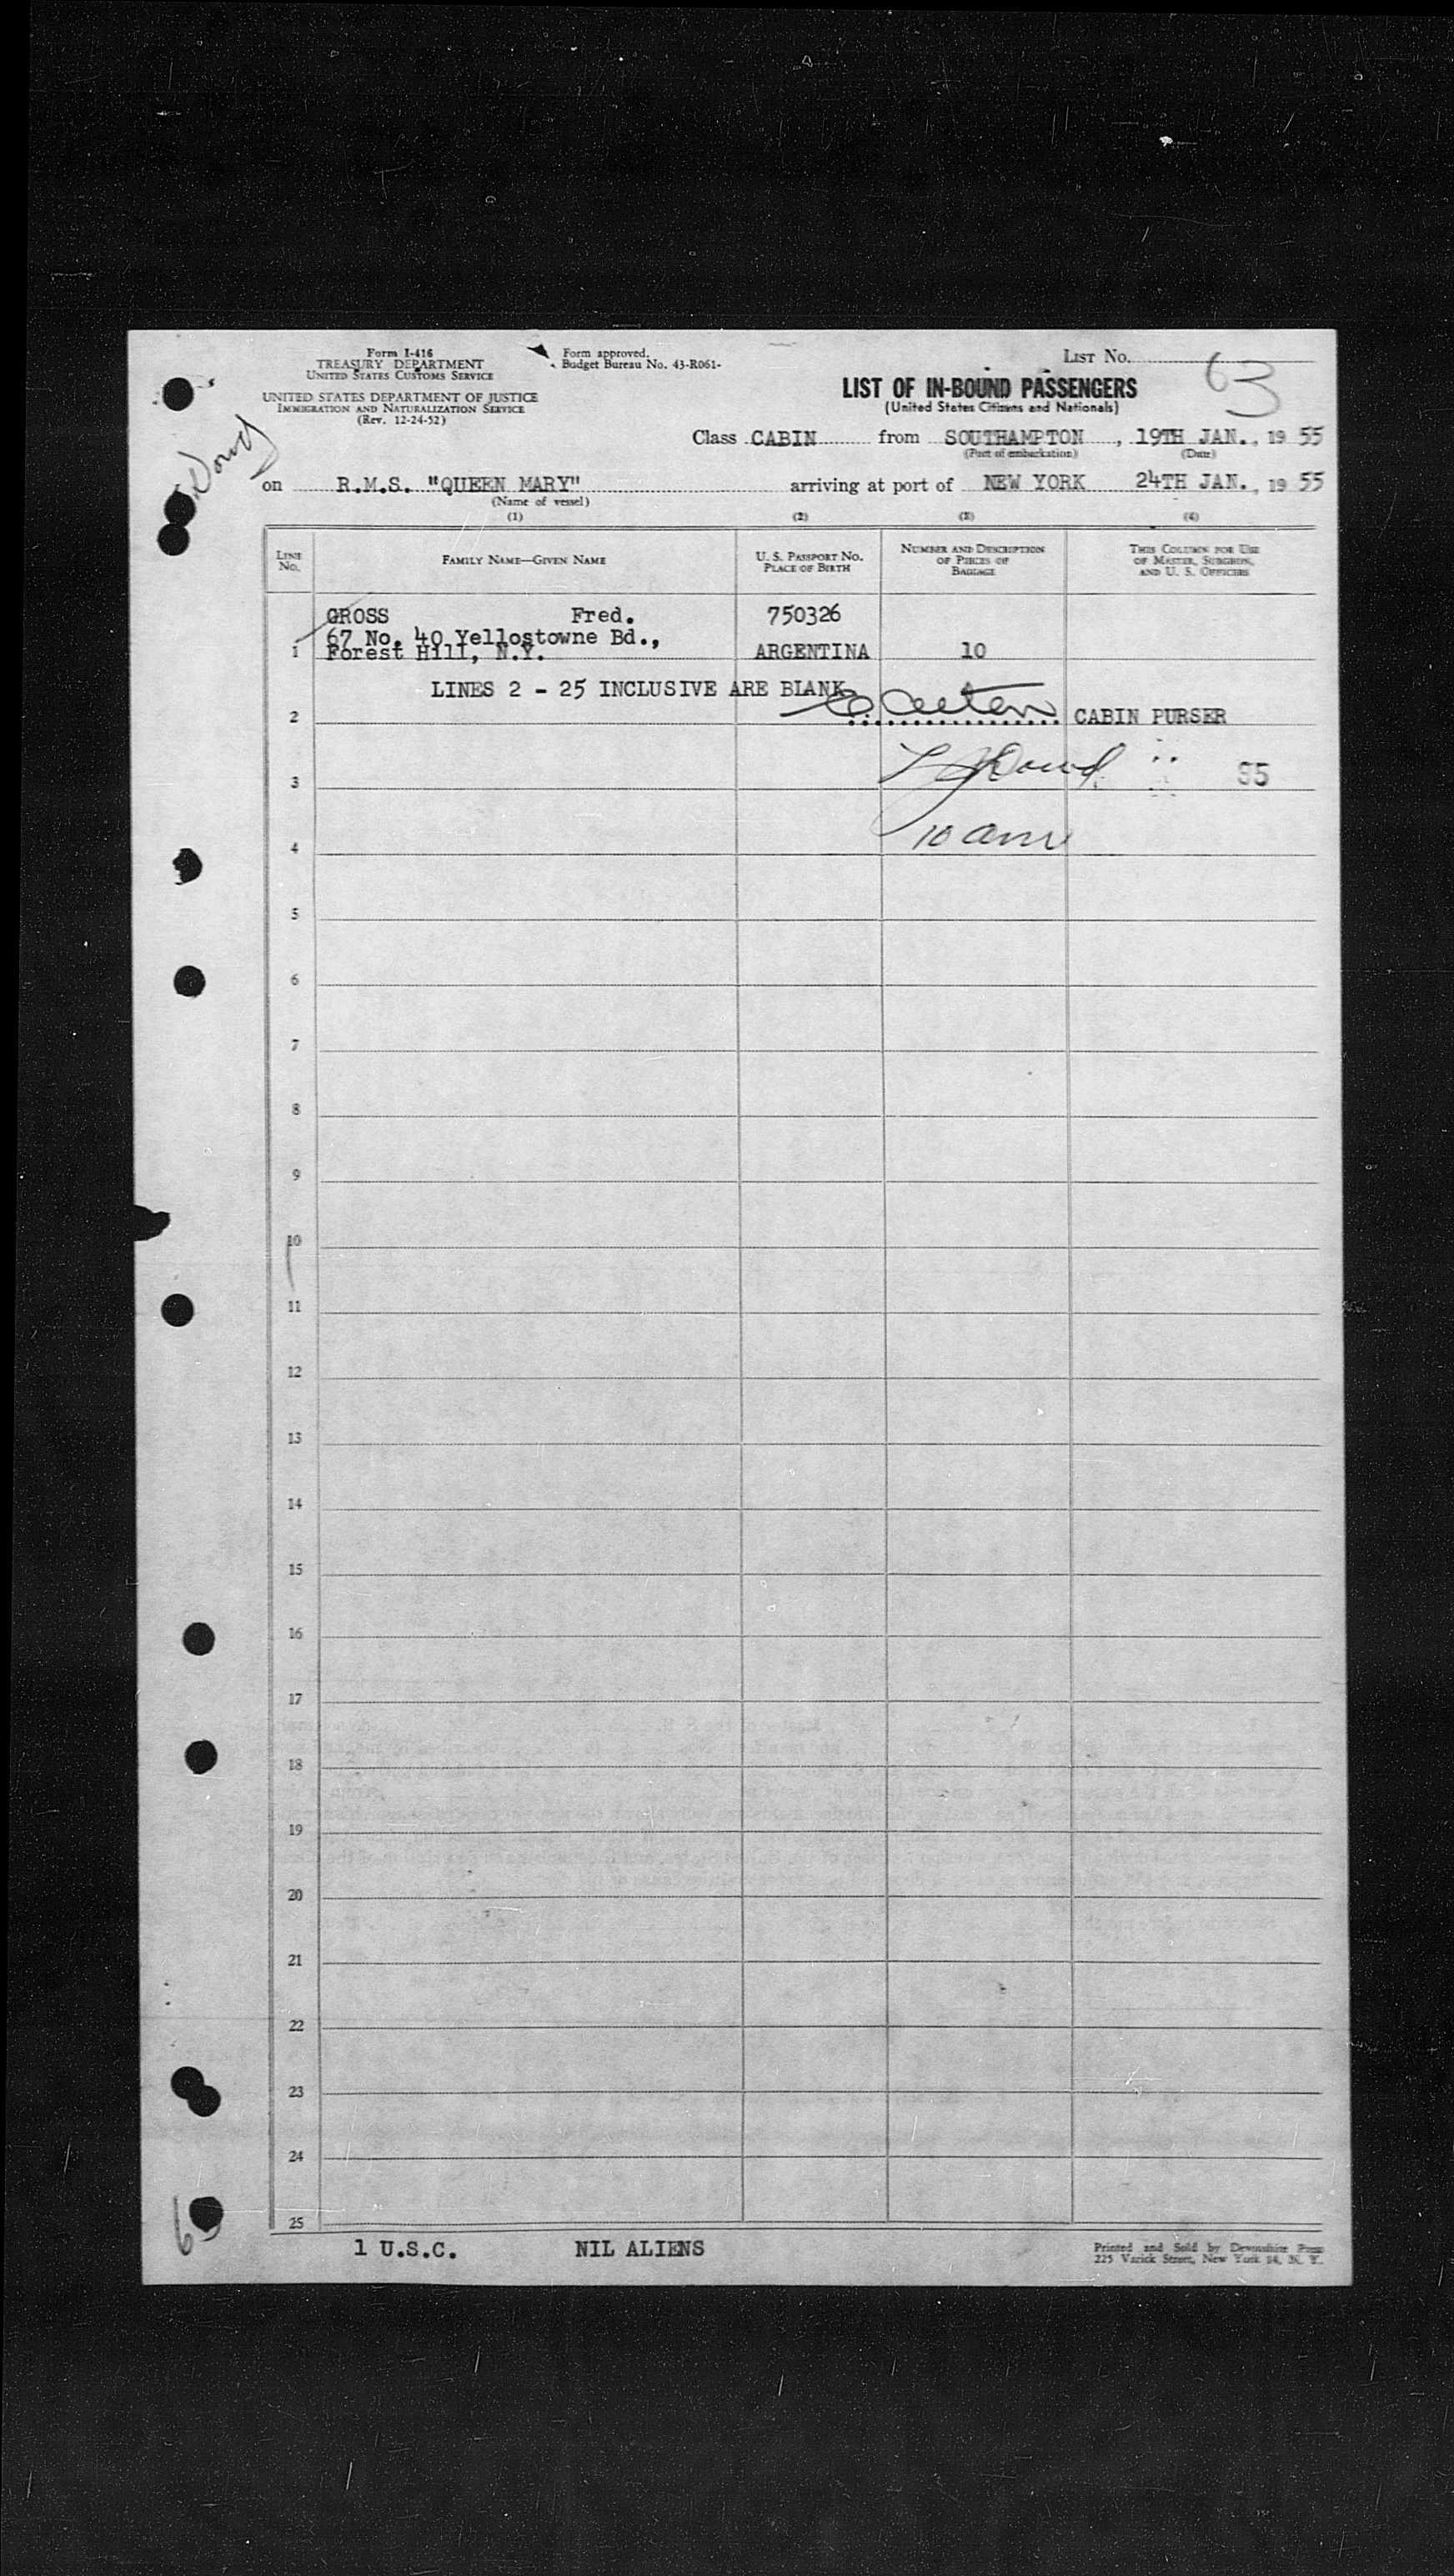 Form I-416
TREASURY DEPARTMENT
UNITED STATES CUSTOMS SERVICE
UNITED STATES DEPARTMENT OF JUSTICE
IMMIGRATION AND NATURALIZATION SERVICE
(Rev. 12-24-52)
Form approved.
Budget Bureau No. 43-R061-
LIST No.
63
LIST OF IN-BOUND PASSENGERS
(United States Citizens and Nationals)
Dowd
Class CABIN from SOUTHAMPTON, 19TH JAN., 19 55
(Port of embarkation) (Date)
on R.M.S. "QUEEN MARY" arriving at port of NEW YORK 24TH JAN., 19 55
(Name of vessel)
(1) (2) (3) (4)
LINE No. FAMILY NAME—GIVEN NAME U. S. PASSPORT No. PLACE OF BIRTH NUMBER AND DESCRIPTION OF PIECES OF BAGGAGE THIS COLUMN FOR USE OF MASTER, SURGEON, AND U. S. OFFICERS
GROSS Fred. 750326
67 No. 40 Yellostowne Bd.,
1 Forest Hill, N.Y. ARGENTINA 10
LINES 2 - 25 INCLUSIVE ARE BLANK
2 CABIN PURSER
3 Dowd
4 10 am
5
6
7
8
9
10
11
12
13
14
15
16
17
18
19
20
21
22
23
24
25
1 U.S.C. NIL ALIENS
Printed and Sold by Devonshire Press
225 Varick Street, New York 14, N. Y.